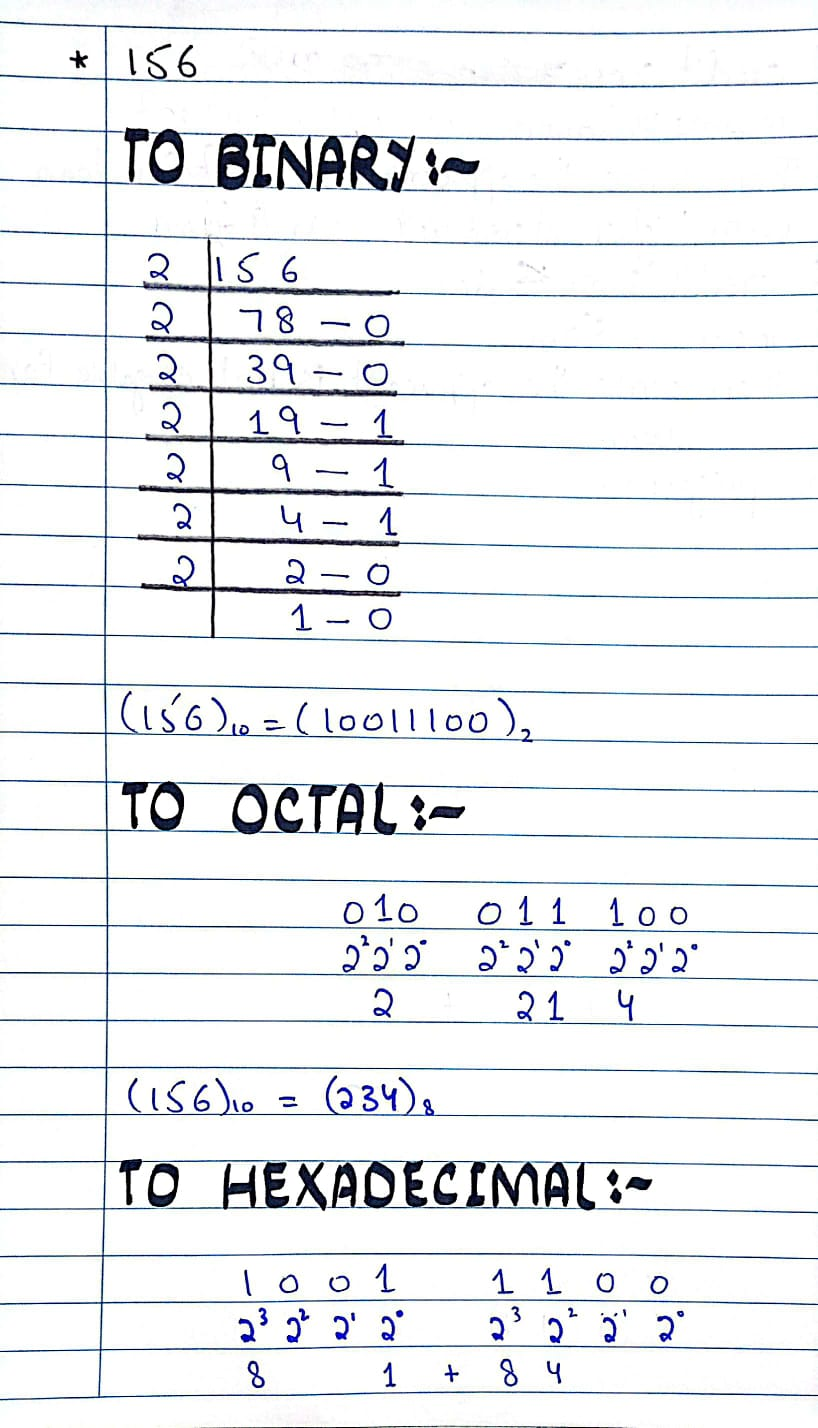 * 156
TO BINARY:~
2 | 156
2 | 78 - 0
2 | 39 - 0
2 | 19 - 1
2 | 9 - 1
2 | 4 - 1
2 | 2 - 0
1 - 0
(156)₁₀ = (10011100)₂
TO OCTAL:~
010 011 100
2²2¹2⁰ 2²2¹2⁰ 2²2¹2⁰
2 21 4
(156)₁₀ = (234)₈
TO HEXADECIMAL:~
1 0 0 1 1 1 0 0
2³ 2² 2¹ 2⁰ 2³ 2² 2¹ 2⁰
8 1 + 8 4